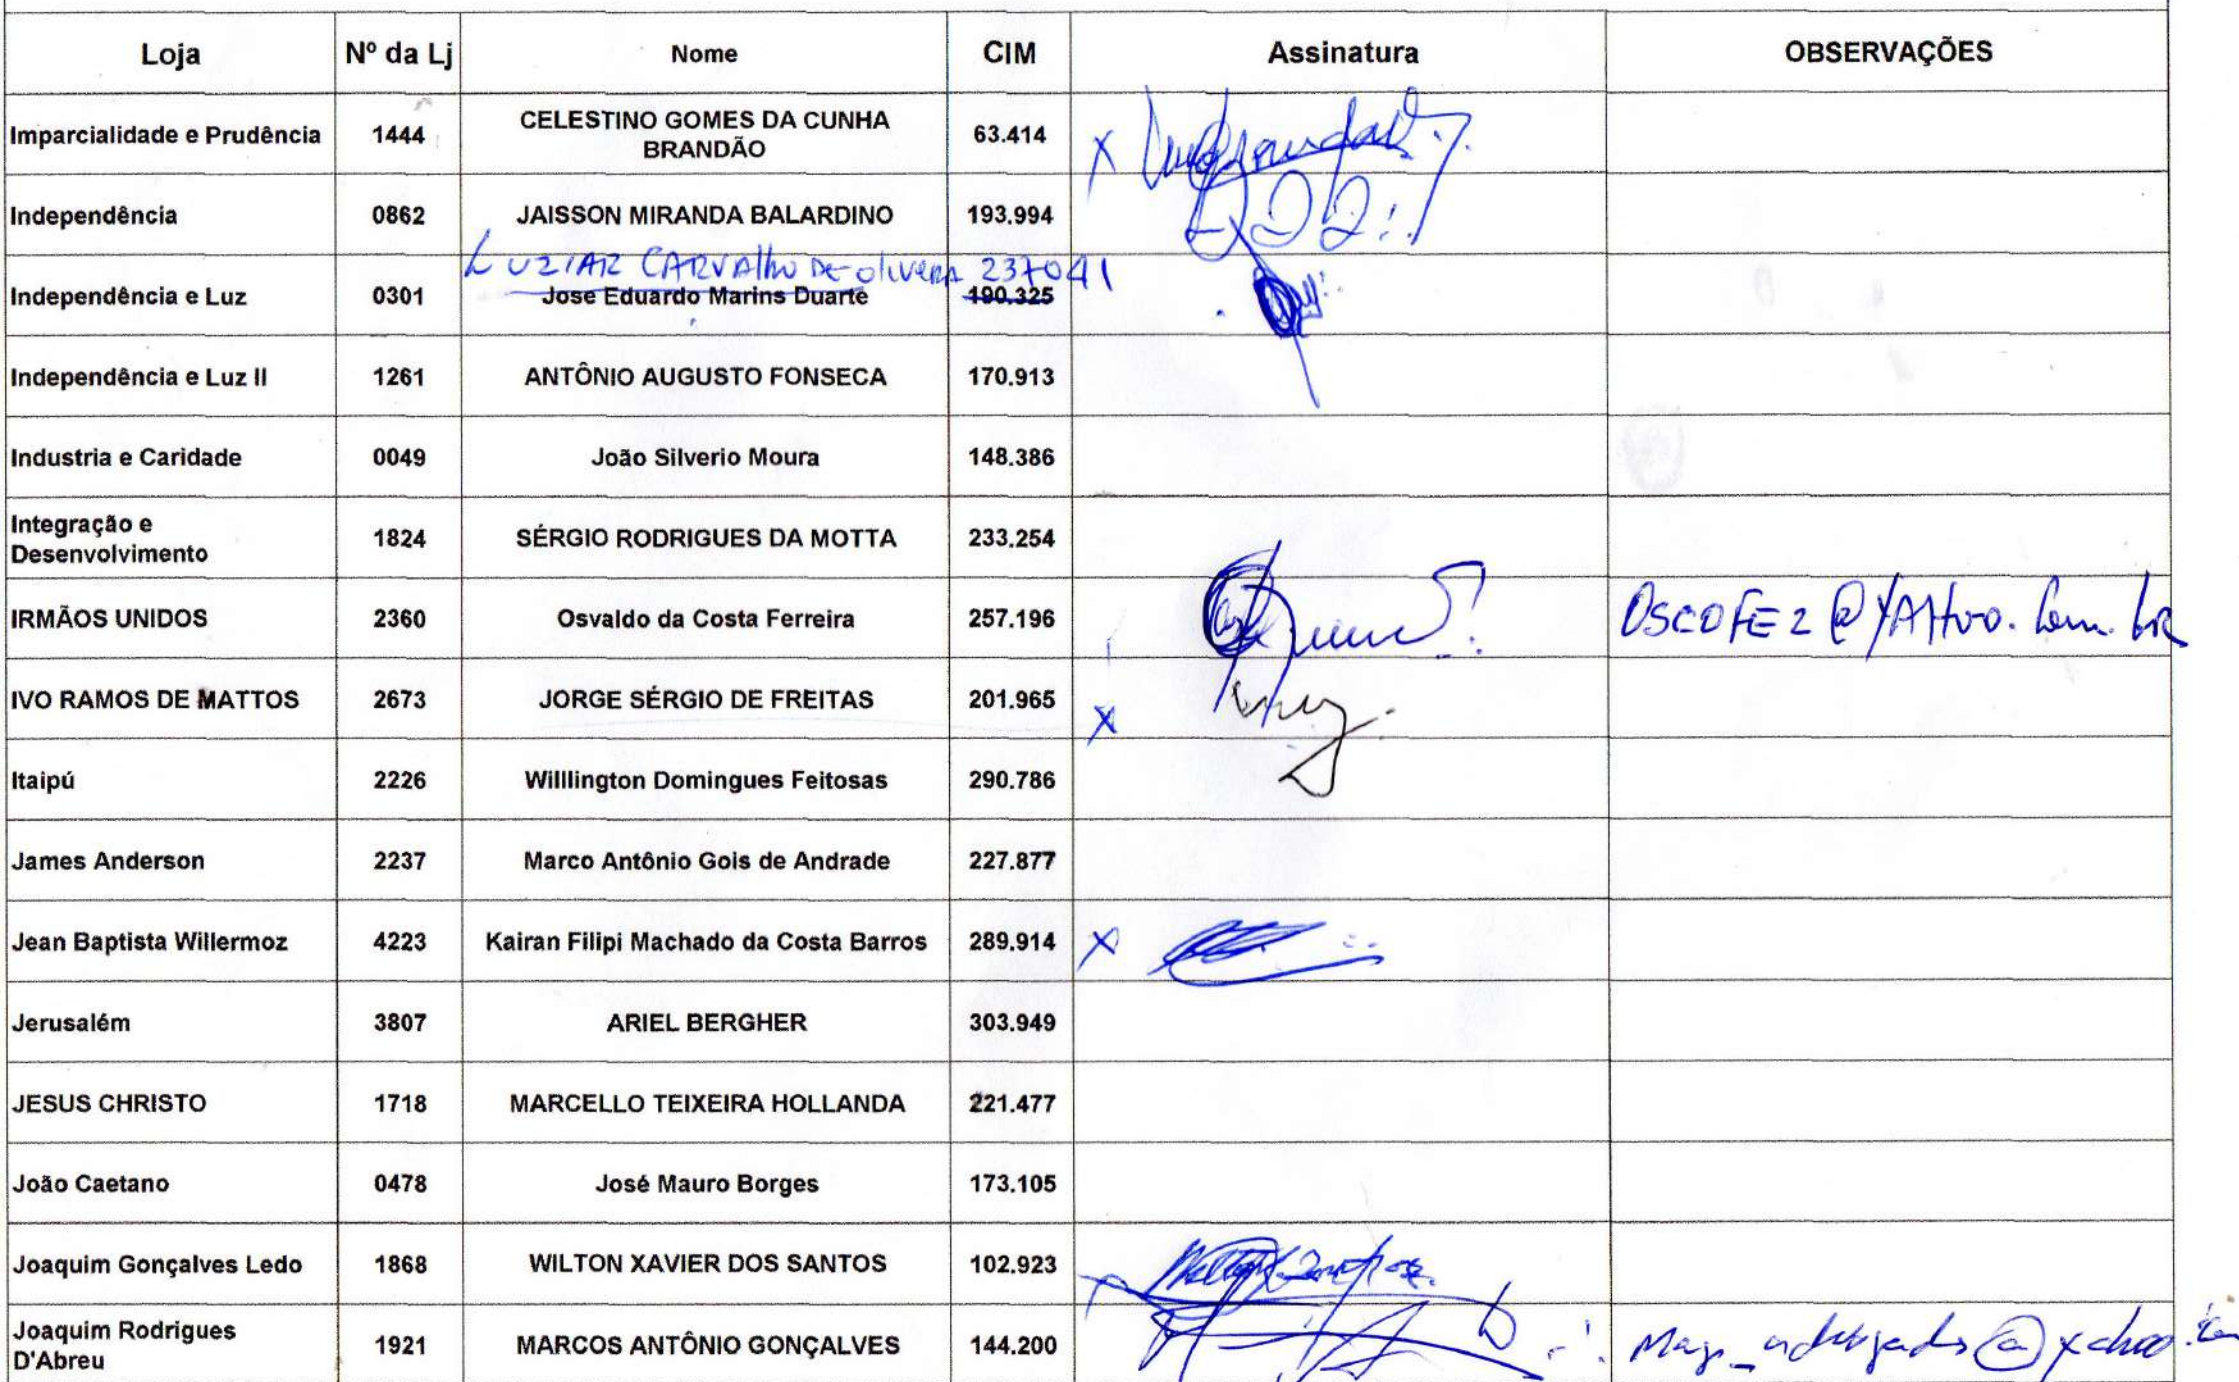 Loja Nº da Lj Nome CIM Assinatura OBSERVAÇÕES
Imparcialidade e Prudência 1444 CELESTINO GOMES DA CUNHA BRANDÃO 63.414 X
Independência 0862 JAISSON MIRANDA BALARDINO 193.994
LUZIAR CARVALHO DE OLIVEIRA 237041
Independência e Luz 0301 Jose Eduardo Marins Duarte 190.325
Independência e Luz II 1261 ANTÔNIO AUGUSTO FONSECA 170.913
Industria e Caridade 0049 João Silverio Moura 148.386
Integração e Desenvolvimento 1824 SÉRGIO RODRIGUES DA MOTTA 233.254
IRMÃOS UNIDOS 2360 Osvaldo da Costa Ferreira 257.196 OSCOFE2@YAHOO.com.br
IVO RAMOS DE MATTOS 2673 JORGE SÉRGIO DE FREITAS 201.965 X
Itaipú 2226 Willlington Domingues Feitosas 290.786
James Anderson 2237 Marco Antônio Gois de Andrade 227.877
Jean Baptista Willermoz 4223 Kairan Filipi Machado da Costa Barros 289.914 X
Jerusalém 3807 ARIEL BERGHER 303.949
JESUS CHRISTO 1718 MARCELLO TEIXEIRA HOLLANDA 221.477
João Caetano 0478 José Mauro Borges 173.105
Joaquim Gonçalves Ledo 1868 WILTON XAVIER DOS SANTOS 102.923 X
Joaquim Rodrigues D'Abreu 1921 MARCOS ANTÔNIO GONÇALVES 144.200